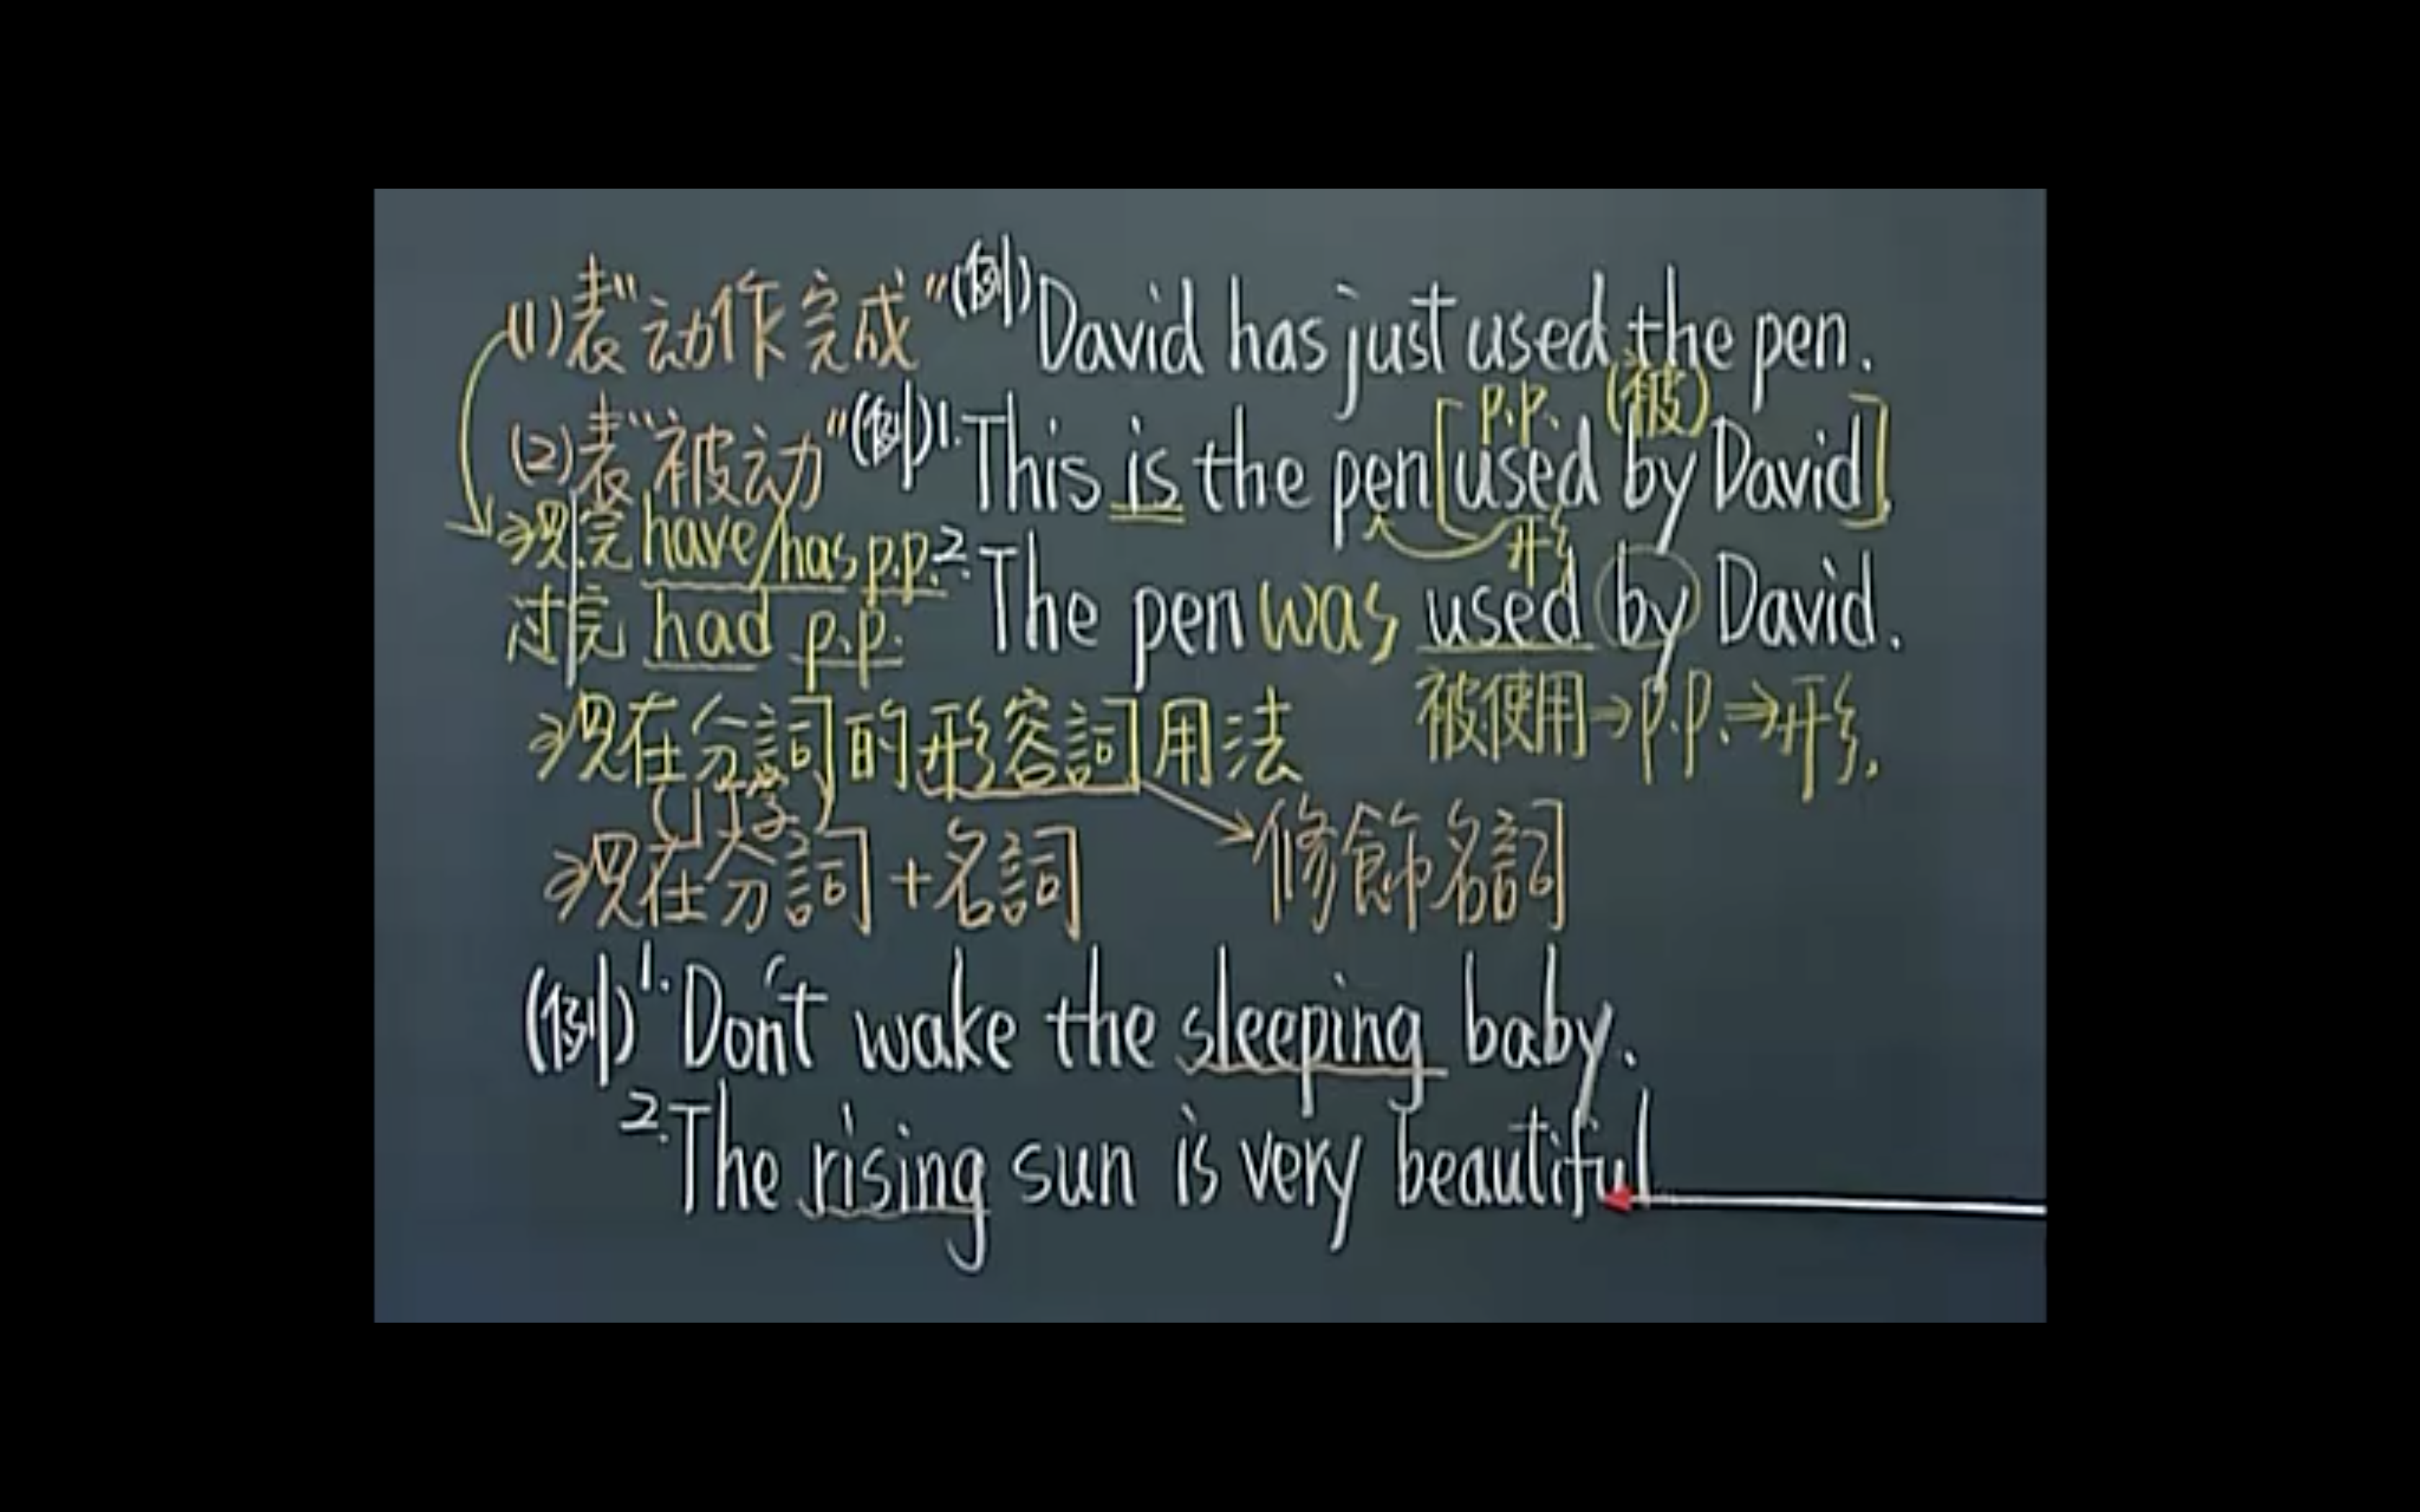 (1)表"动作完成"(例)David has just used the pen.
p.p. (被)
(2)表"被动"(例)1.This is the pen[used by David].
形
⇒现完 have/has p.p. 2.The pen was used by David.
过完 had p.p.
被使用→p.p.⇒形.
⇒现在分詞的形容詞用法
⇒现在分詞+名詞 修飾名詞
(例)1.Don't wake the sleeping baby.
2.The rising sun is very beautiful